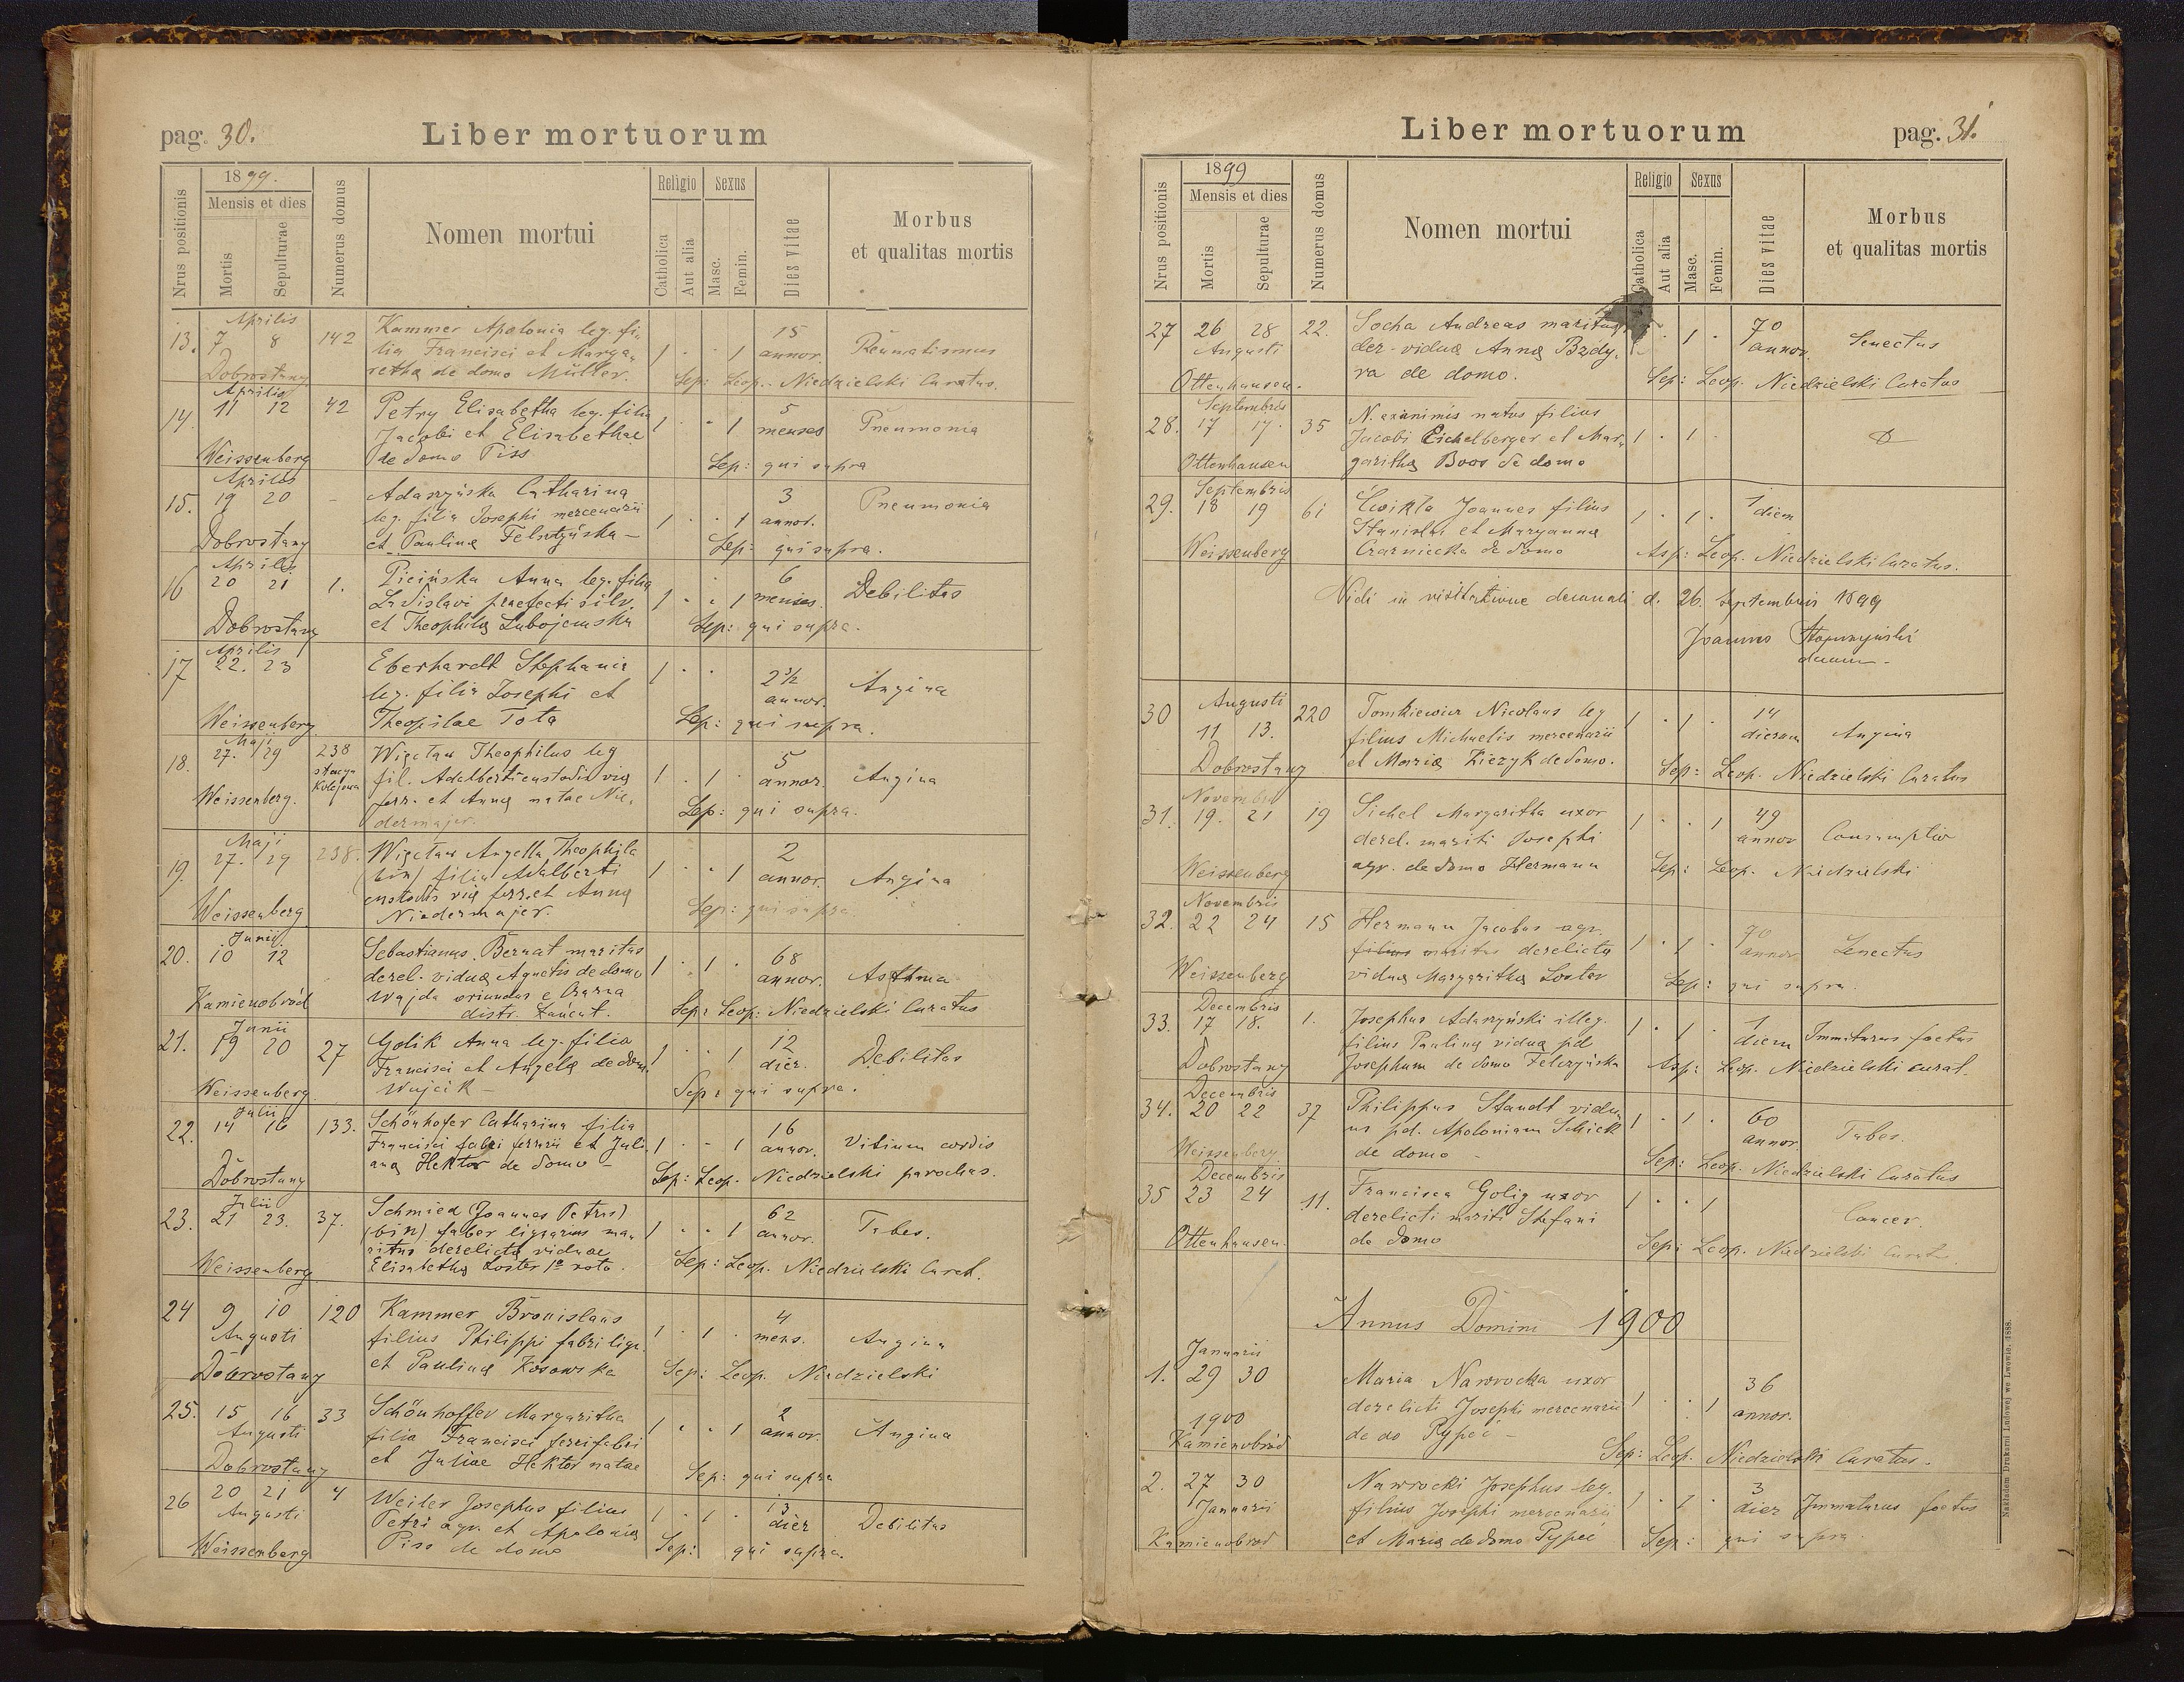 pag. 30.
Liber mortuorum
Nrus positionis
1899.
Mensis et dies
Mortis
Sepulturae
Numerus domus
Nomen mortui
Religio
Catholica
Aut alia
Sexus
Masc.
Femin.
Dies vitae
Morbus
et qualitas mortis
Aprilis
13. 7 8 142 Kammer Apolonia leg. fi-
lia Francisci et Marga-
retha de domo Müller. 1 . . 1 15 annor. Reumatismus
Dobrostany Sep: Leop. Niedzielski Curatus.
Aprilis
14. 11 12 42 Petry Elisabetha leg. filia
Jacobi et Elisabethae 1 . . 1 5 menses Pneumonia
Weissenberg de domo Piss Sep: qui supra
Aprilis
15. 19 20 - Adaszyńska Catharina
leg. filia Josephi mercenarii 1 . . 1 3 annor. Pneumonia
Dobrostany et Paulina Felsztyńska - Sep: qui supra.
Aprilis
16 20 21 1. Picińska Anna leg. filia
Ladislavi praefecti silv. 1 . . 1 6 menses. Debilitas
Dobrostany et Theophila Lubojemska Sep: qui supra.
Aprilis
17 22. 23 Eberhardt Stephania 1 . .
leg. filia Josephi et 2 1/2 annor. Angina
Weissenberg Theopilae Tota Sep: qui supra.
Maji
18. 27. 29 238 Wigclaw Theophilus leg
stacya
Kolejowa
fil. Adalberti custodis via 1 . 1 . 5 annor. Angina
Weissenberg. ferr. et Anna natae Nie-
dermajer. Sep: qui supra.
Maji
19. 27. 29 238. Wigclaw Angella Theophila
(bin) filia Adalberti 1 . . 1 2 annor. Angina
custodis via ferr. et Anna
Weissenberg Niedermajer. Sep: qui supra
Junii
20. 10 12 Sebastianus Bernat maritus
derel. vidua Agnetis de domo 1 . 1 . 68 annor. Asthma
Wajda oriundus e Czarna
Kamienobród distr. Łańcut. Sep: Leop: Niedzielski Curatus
Junii
21. 19 20 27 Golik Anna leg. filia
Francisci et Angela de dom. 1 . . 1 12 dier. Debilitas
Weissenberg Wujcik - Sep: qui supra.
Julii
22. 14 16 133. Schönhofer Catharina filia
Francisci fabri ferrarii et Juli- 1 . . 1 16 annor. Vitium cordis
Dobrostany ana Hektor de domo - Sep: Leop. Niedzielski parochus.
Julii
23. 21 23. 37. Schmied (Joannes Petrus)
(bin) faber lignarius ma- 1 . . 1 62 annor. Tabes.
ritus derelicta viduae
Weissenberg Elisabetha Loster 1o voto. Sep: Leop. Niedzielski Curat.
24 9 10 120 Kammer Bronislaus
Augusti filius Philippi fabri lign. 1 . 1 . 4 mens. Angina
Dobrostany et Paulina Kosowska Sep: Leop. Niedzielski
25. 15 16 33 Schönhoffer Margaritha
Augusti filia Francisci ferrifabri 1 . . 1 2 annor. Angina
Dobrostany et Juliae Hektor natae Sep: qui supra
26 20 21 4 Weiler Josephus filius
Augusti Petri agr. et Apolonia 1 . 1 . 13 dier Debilitas
Weissenberg Piss de domo Sep: qui supra.
Liber mortuorum
pag. 31.
Nrus positionis
1899
Mensis et dies
Mortis
Sepulturae
Numerus domus
Nomen mortui
Religio
Catholica
Aut alia
Sexus
Masc.
Femin.
Dies vitae
Morbus
et qualitas mortis
27 26 28 22. Socha Andreas maritus
Augusti der. vidua Anna Bzdy- . 1 . 70 annor. Senectus
Ottenhausen. ra de domo. Sep: Leop. Niedzielski Curatus
Septembris
28. 17 17. 35 N. exanimis natus filius
Jacobi Eichelberger et Mar- 1 . 1 .
Ottenhausen garitha Boos de domo
Septembris
29. 18 19 61 Ćwikła Joannes filius
Stanislai et Maryanna 1 . 1 . 1 diem
Weissenberg Czarniecka de domo Asp: Leop. Niedzielski Curatus.
Vidi in visitatione decanali d. 26. Septembris 1899
Joannes
decan -
Augusti
30 11 13. 220 Tomkiewicz Nicolaus leg
filius Michaelis mercenarii 1 . 1 . 14 dierum Angina
Dobrostany et Maria Kiczyk de domo. Sep: Leop. Niedzielski Curatus
Novembris
31. 19. 21 19 Sichel Margaritha uxor
derel. mariti Josephi 1 . . 1 49 annor Consumptio
Weissenberg agr. de domo Hermann Sep: Leop. Niedzielski
Novembris
32. 22 24 15 Hermann Jacobus agr.
filius maritus derelicta 1 . 1 . 70 annor Senectus
Weissenberg vidua Margaritha Loster Sep: qui supra.
Decembris
33. 17 18. 1. Josephus Adaszyński illeg.
filius Paulina vidua pd 1 . 1 . 1 diem Immaturus foetus
Dobrostany Josephum de domo Felczyńska Asp: Leop. Niedzielski curat.
Decembris
34. 20 22 37 Philippus Staudt vidu-
us pd. Apoloniam Schick 1 . 1 . 60 annor. Tabes.
Weissenberg de domo - Sep: Leop. Niedzielski Curatus
Decembris
35 23 24 11. Francisca Golig uxor
derelicti mariti Stefani 1 . . 1 Cancer.
Ottenhausen. de domo Sep: Leop. Niedzielski Curatus
Annus Domini 1900
Januarii
1. 29 30 Maria Nawrocka uxor
derelicti Josephi mercenarii 1 . . 1 36 annor.
1900
Kamienobród de do Pypeć - Sep: Leop. Niedzielski Curatus.
2. 27 30 Nawrocki Josephus leg.
Januarii filius Josephi mercenarii 1 . 1 . 3 dier Immaturus foetus
Kamienobród et Maria de domo Pypeć Sep: qui supra
Nakładem Drukarni Ludowej we Lwowie. 1888.